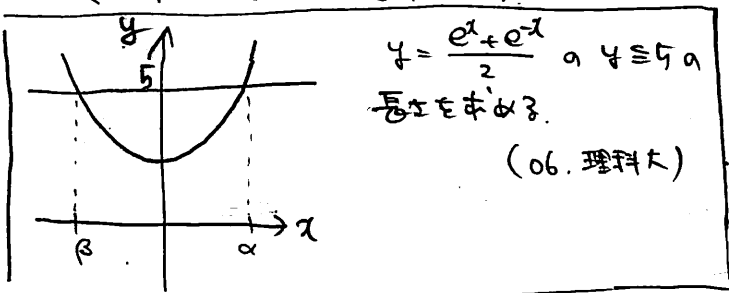 y
5
β
α
x
y = (e^x + e^-x)/2 の y ≦ 5 の
長さを求める.
(06. 理科大)